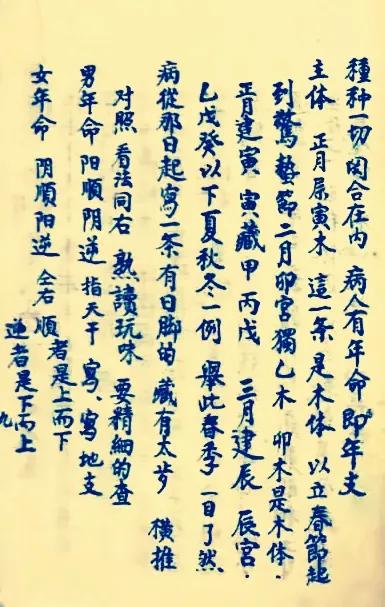 種种一切因合在内 病人有年命即年支
主体 正月屬寅木 這一条是木体 以立春節起
到驚蟄節二月卯宫獨乙木 卯木是木体.
正月建寅 寅藏甲丙戊 三月建辰 辰宫.
乙戊癸以下夏秋冬一例 舉此春季 一目了然
病從那日起寫一条有日脚的 藏有太岁 横推
对照 看法同右 熟讀玩味 要精细的查
男年命阳順阴逆 指天干 寫、寫地支
女年命 阴順阳逆 仝右 順者是上而下
逆者是下而上
九